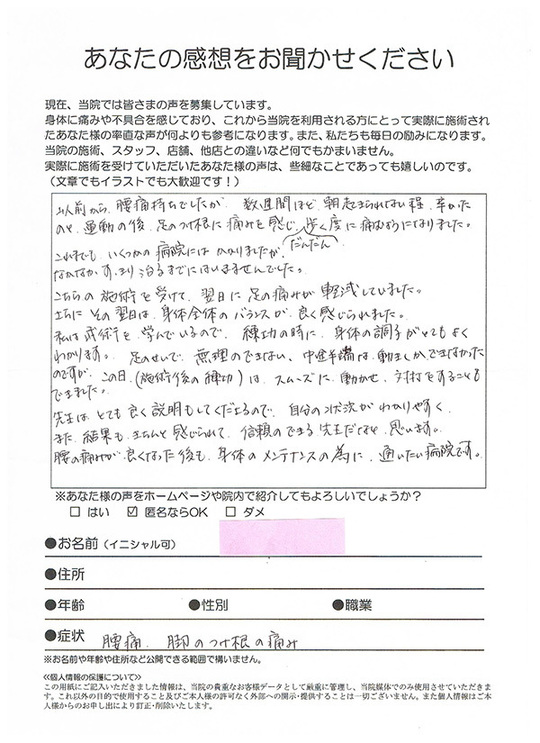 あなたの感想をお聞かせください
現在、当院では皆さまの声を募集しています。
身体に痛みや不具合を感じており、これから当院を利用される方にとって実際に施術され
たあなた様の率直な声が何よりも参考になります。また、私たちも毎日の励みになります。
当院の施術、スタッフ、店舗、他店との違いなど何でもかまいません。
実際に施術を受けていただいたあなた様の声は、些細なことであっても嬉しいのです。
(文章でもイラストでも大歓迎です！)
以前から、腰痛持ちでしたが、数週間ほど、朝起きられない程、辛かった
のと、運動の後、足のつけ根に痛みを感じ、歩く度に痛むようになりました。
だんだん
これまでも、いくつかの病院にはかかりましたが、
なかなかすっきり治るまでにはいきませんでした。
こちらの施術を受けて、翌日に足の痛みが軽減していました。
さらにその翌日は、身体全体のバランスが、良く感じられました。
私は武術を学んでいるので、練功の時に、身体の調子がとてもよく
わかります。足のせいで、無理のできない、中途半端な動きしかできなかった
のですが、この日(施術後の練功)は、スムーズに動かせ、対打をすることも
できました。
先生はとても良く説明もしてくださるので、自分の状況がわかりやすく、
また、結果も、きちんと感じられて、信頼のできる先生だなと思います。
腰の痛みが良くなった後も、身体のメンテナンスの為に、通いたい病院です。
※あなた様の声をホームページや院内で紹介してもよろしいでしょうか？
□ はい ☑ 匿名ならOK □ ダメ
●お名前(イニシャル可)
●住所
●年齢 ●性別 ●職業
●症状 腰痛、脚のつけ根の痛み
※お名前や年齢や住所など公開できる範囲で構いません。
≪個人情報の保護について≫
この用紙にご記入いただきました情報は、当院の貴重なお客様データとして厳重に管理し、当院媒体でのみ使用させていただきま
す。これ以外の目的で使用すること及びご本人様の許可なく外部への開示・提供することは一切ございません。また個人情報はご本
人様からのお申し出により訂正・削除いたします。